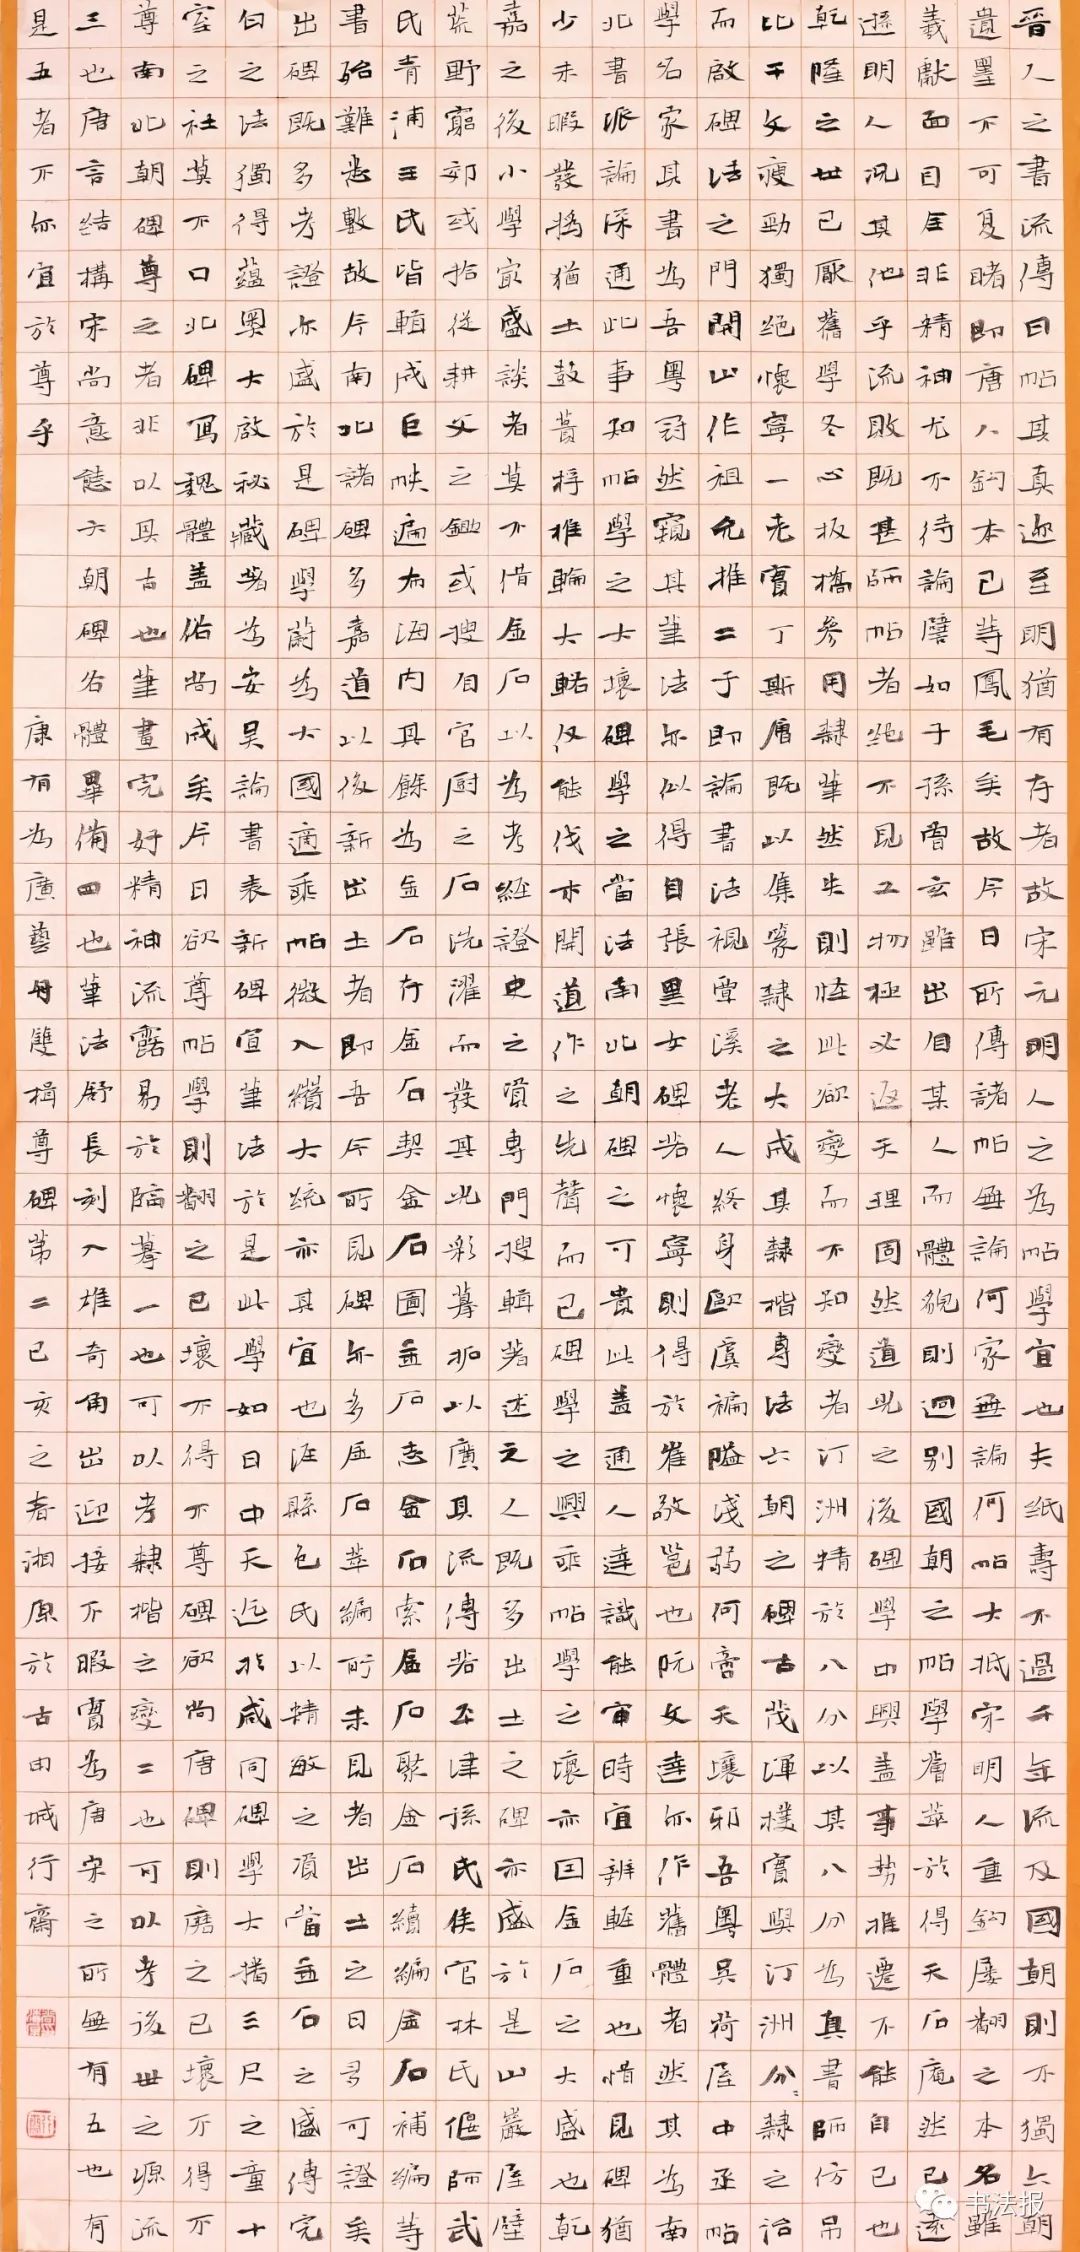 晉人之書流傳曰帖其真迹至明猶有存者故宋元明人之為帖學宜也夫紙壽不過千年流及國朝則不獨六朝
遺墨不可复睹即唐人鈎本已等鳳毛矣故今日所傳諸帖無論何家無論何帖大抵宋明人重鈎屡翻之本名雖
羲獻面目全非精神尤不待論譬如子孫曾玄雖出自某人而體貌則迥別國朝之帖學薈萃於得天石庵然已遠
遜明人況其他乎流敗既甚師帖者絶不見工物極必返天理固然道光之後碑學中興蓋事勢推遷不能自已也
乾隆之世已厭舊學冬心板橋參用隸筆然失則怪此欲變而不知變者汀洲精於八分以其八分為真書師仿吊
比干文瘦勁獨絶懷寧一老實丁斯會既以集篆隸之大成其隸楷專法六朝之碑古茂渾樸實與汀洲分隸之治
而啟碑法之門開山作祖允推二子即論書法視覃溪老人終身歐虞褊隘淺弱何啻天壤邪吾粵吳荷屋中丞帖
學名家其書為吾粵冠然窺其筆法亦似得自張黑女碑若懷寧則得於崔敬邕也阮文達亦作舊體者然其為南
北書派論深通此事知帖學之大壞碑學之當法南北朝碑之可貴此蓋通人達識能審時宜辨輊重也惜見碑猶
少未暇發揚猶土鼓蕢桴椎輪大輅仅能伐木開道作之先聲而已碑學之興乘帖學之壞亦因金石之大盛也乾
嘉之後小學最盛談者莫不借金石以為考經證史之資專門搜輯著述之人既多出土之碑亦盛於是山巖屋壁
荒野窮郊或拾從耕父之鋤或搜自官厨之石洗濯而發其光彩摹拓以廣其流傳若平津孫氏侯官林氏偃師武
氏青浦王氏皆輯成巨帙遍布海内其餘為金石存金石契金石圖金石志金石索金石聚金石續編金石補編等
書殆難悉數故今南北諸碑多嘉道以後新出土者即吾今所見碑亦多金石萃編所未見者出土之日多可證矣
出碑既多考證亦盛於是碑學蔚為大國適乘帖微入纘大統亦其宜也涇縣包氏以精敏之資當金石之盛傳完
白之法獨得蘊奥大啟秘藏著為安吳論書表新碑宣筆法於是此學如日中天迄於咸同碑學大播三尺之童十
室之社莫不口北碑寫魏體盖俗尚成矣今日欲尊帖學則翻之已壞不得不尊碑欲尚唐碑則磨之已壞不得不
尊南北朝碑尊之者非以其古也筆畫完好精神流露易於臨摹一也可以考隸楷之變二也可以考後世之源流
三也唐言結構宋尚意態六朝碑各體畢備四也筆法舒長刻入雄奇角出迎接不暇實為唐宋之所無有五也有
是五者不亦宜於尊乎
康有為廣藝舟雙楫尊碑第二己亥之春湘原於古由城行齋
书法报